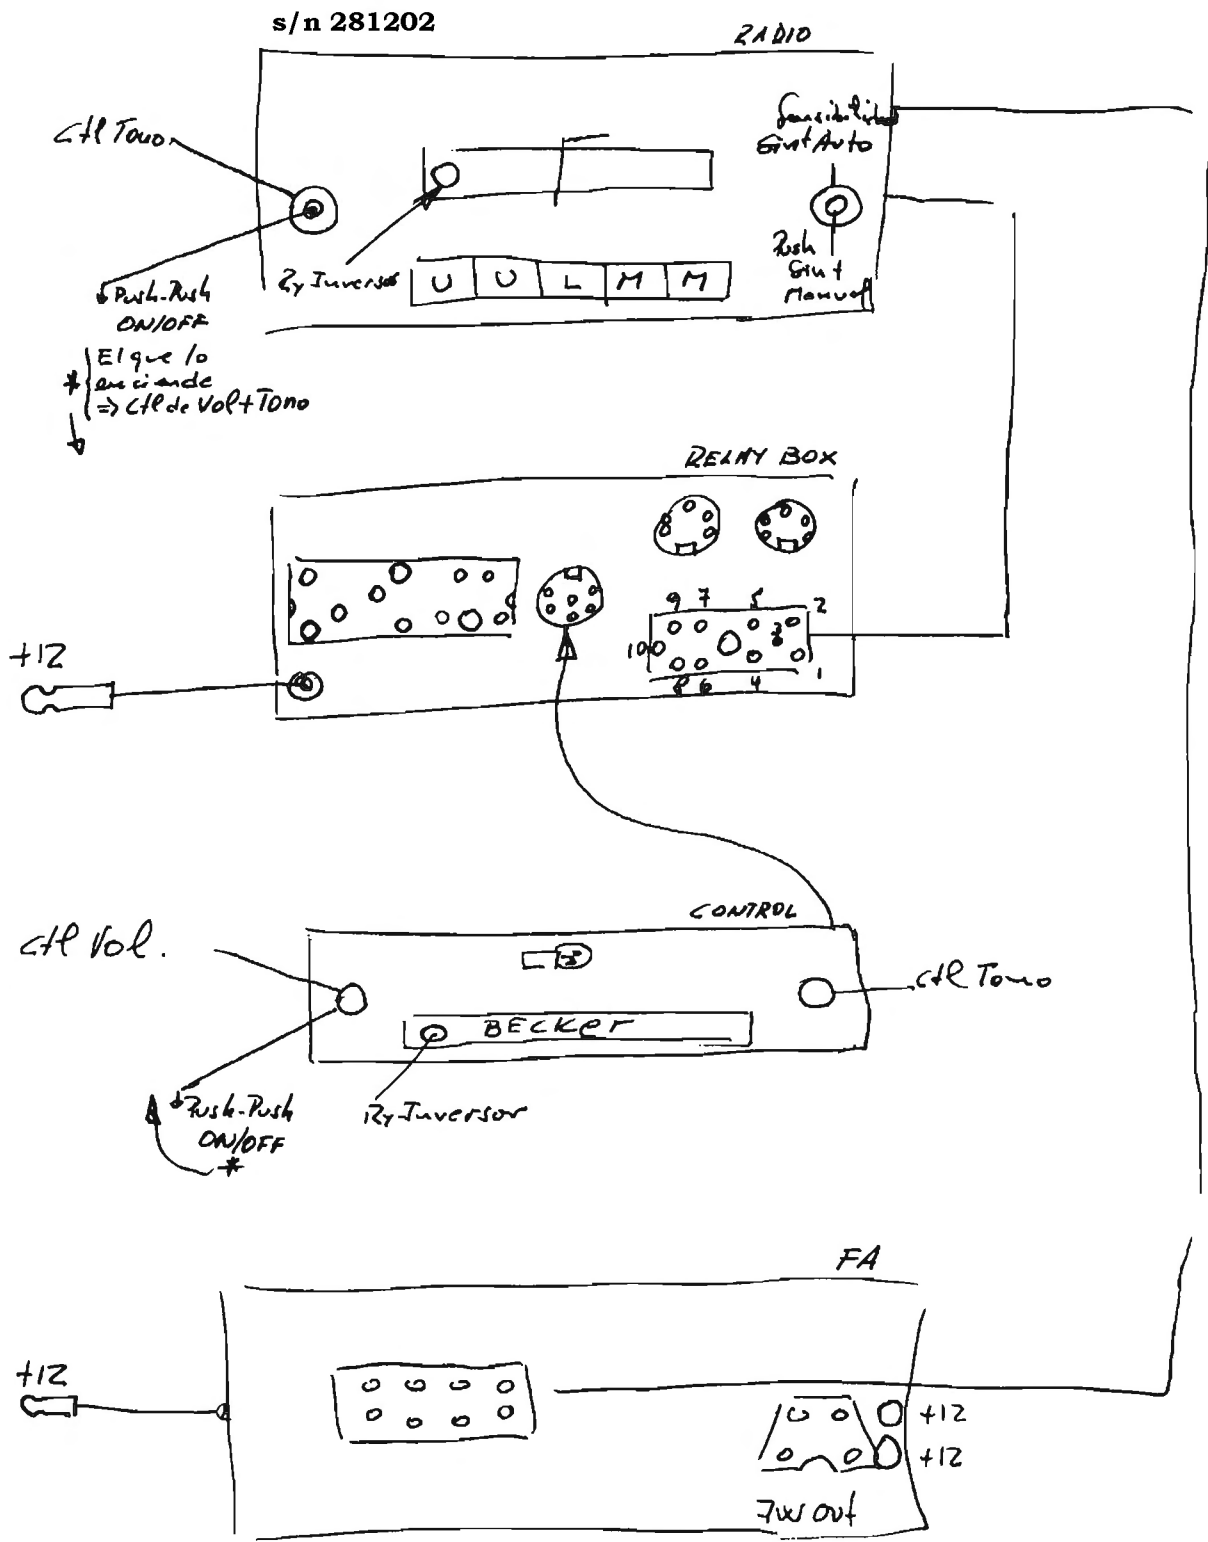 s/n 281202
RADIO
Ctl Tono
Sensibilidad
Sint Auto
Ry Inversor
U U L M M
Push
Sint
Manual
Push-Push
ON/OFF
* El que lo
enciende
=> Ctl de Vol + Tono
RELAY BOX
9 7 5 2
3
10
8 6 4 1
+12
CONTROL
Ctl Vol.
Ctl Tono
BECKER
Push-Push
ON/OFF
*
Ry Inversor
FA
+12
+12
+12
7W Out